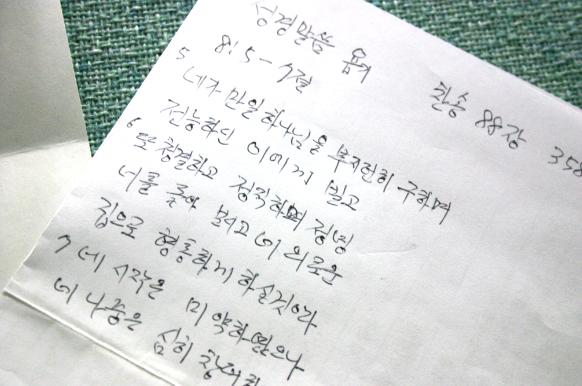 성경말씀 욥기 찬송 88장 358
8:5-7절
5 네가 만일 하나님을 부지런히 구하며
전능하신 이에게 빌고
6 또 청결하고 정직하며 정녕
너를 돌아 보시고 네 의로운
집으로 형통하게 하실것이라
7 네 시작은 미약하였으나
네 나중은 심히 창대히